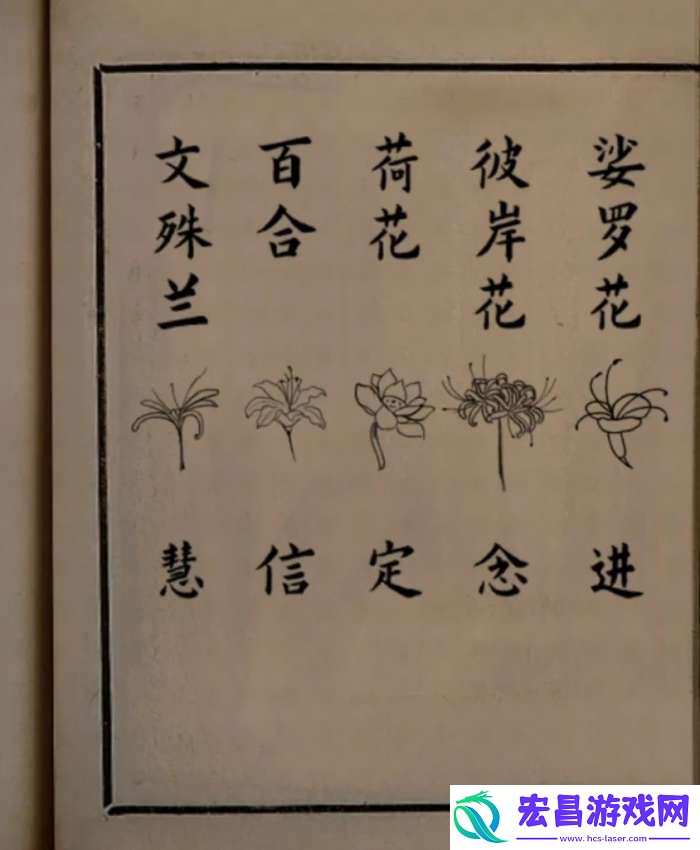 娑罗花
进
彼岸花
念
荷花
定
百合
信
文殊兰
慧
宏昌游戏网
www.hcs-laser.com